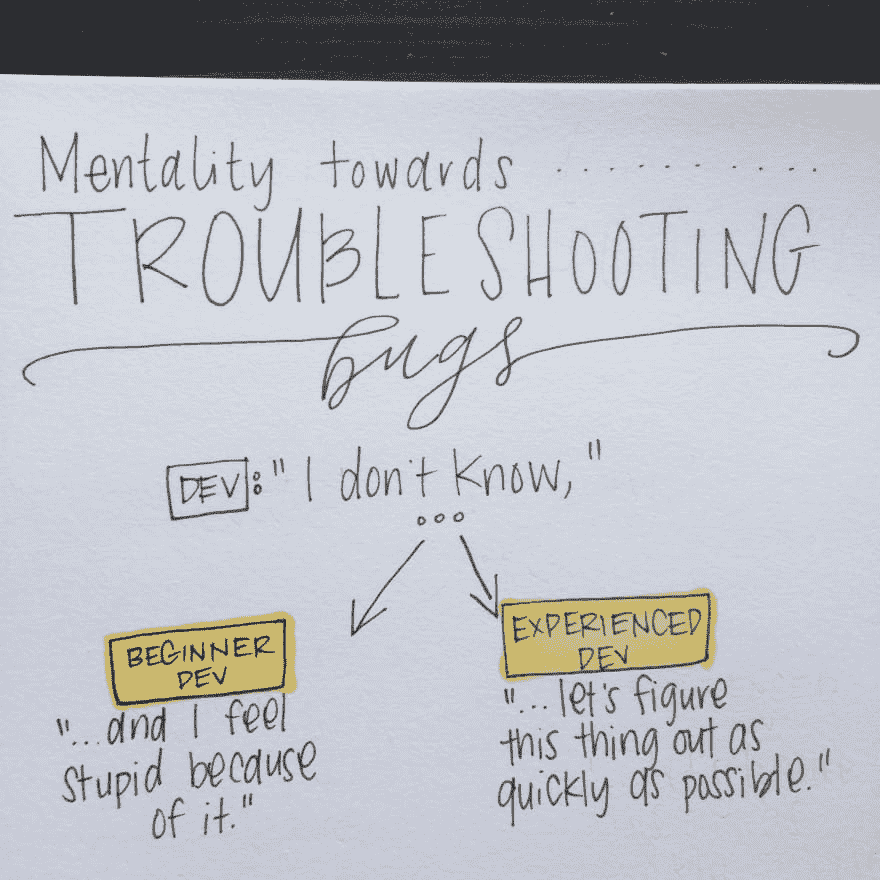 Mentality towards ..........
TROUBLESHOOTING
bugs
DEV: "I don't know,"
...
BEGINNER
DEV
"...and I feel
stupid because
of it."
EXPERIENCED
DEV
"...let's figure
this thing out as
quickly as possible."